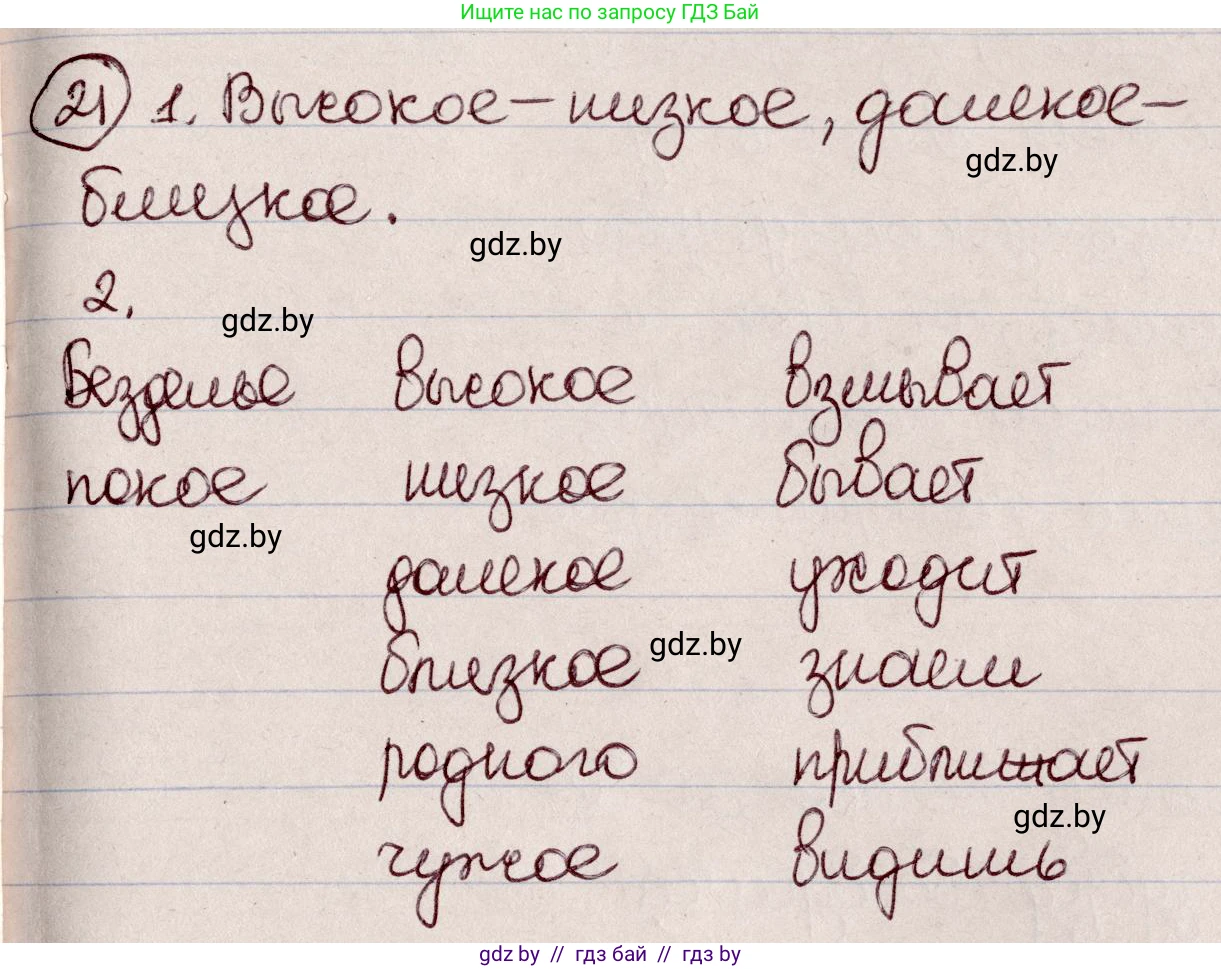 Ищите нас по запросу ГДЗ Бай
21 1. Высокое – низкое, далекое –
gdz.by
близкое.
gdz.by
2.
gdz.by
Безделье высокое взмывает
покое низкое бывает
gdz.by
далекое уходит
близкое gdz.by знаем
родного приближает
gdz.by
чужое видишь
gdz.by // гдз бай // гдз by